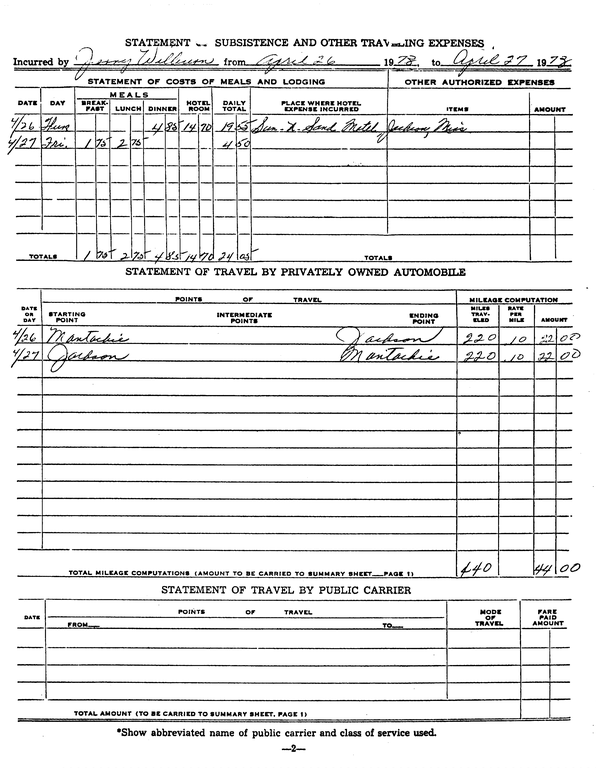 STATEMENT SUBSISTENCE AND OTHER TRAVELING EXPENSES
Incurred by Jerry Wilburn from April 26 1978 to April 27 1978
STATEMENT OF COSTS OF MEALS AND LODGING OTHER AUTHORIZED EXPENSES
MEALS
DATE DAY BREAK-FAST LUNCH DINNER HOTEL ROOM DAILY TOTAL PLACE WHERE HOTEL EXPENSE INCURRED ITEMS AMOUNT
4/26 Thurs 4 85 14 70 19 55 Sun-N-Sand Motel, Jackson, Miss
4/27 Fri. 1 75 2 75 4 50
TOTALS 1 75 2 75 4 85 14 70 24 05 TOTALS
STATEMENT OF TRAVEL BY PRIVATELY OWNED AUTOMOBILE
POINTS OF TRAVEL MILEAGE COMPUTATION
DATE OR DAY STARTING POINT INTERMEDIATE POINTS ENDING POINT MILES TRAV-ELED RATE PER MILE AMOUNT
4/26 Mantachie Jackson 220 .10 22 00
4/27 Jackson Mantachie 220 .10 22 00
TOTAL MILEAGE COMPUTATIONS (AMOUNT TO BE CARRIED TO SUMMARY SHEET—PAGE 1) 440 44 00
STATEMENT OF TRAVEL BY PUBLIC CARRIER
DATE POINTS OF TRAVEL MODE OF TRAVEL FARE PAID AMOUNT
FROM— TO—
TOTAL AMOUNT (TO BE CARRIED TO SUMMARY SHEET, PAGE 1)
*Show abbreviated name of public carrier and class of service used.
—2—